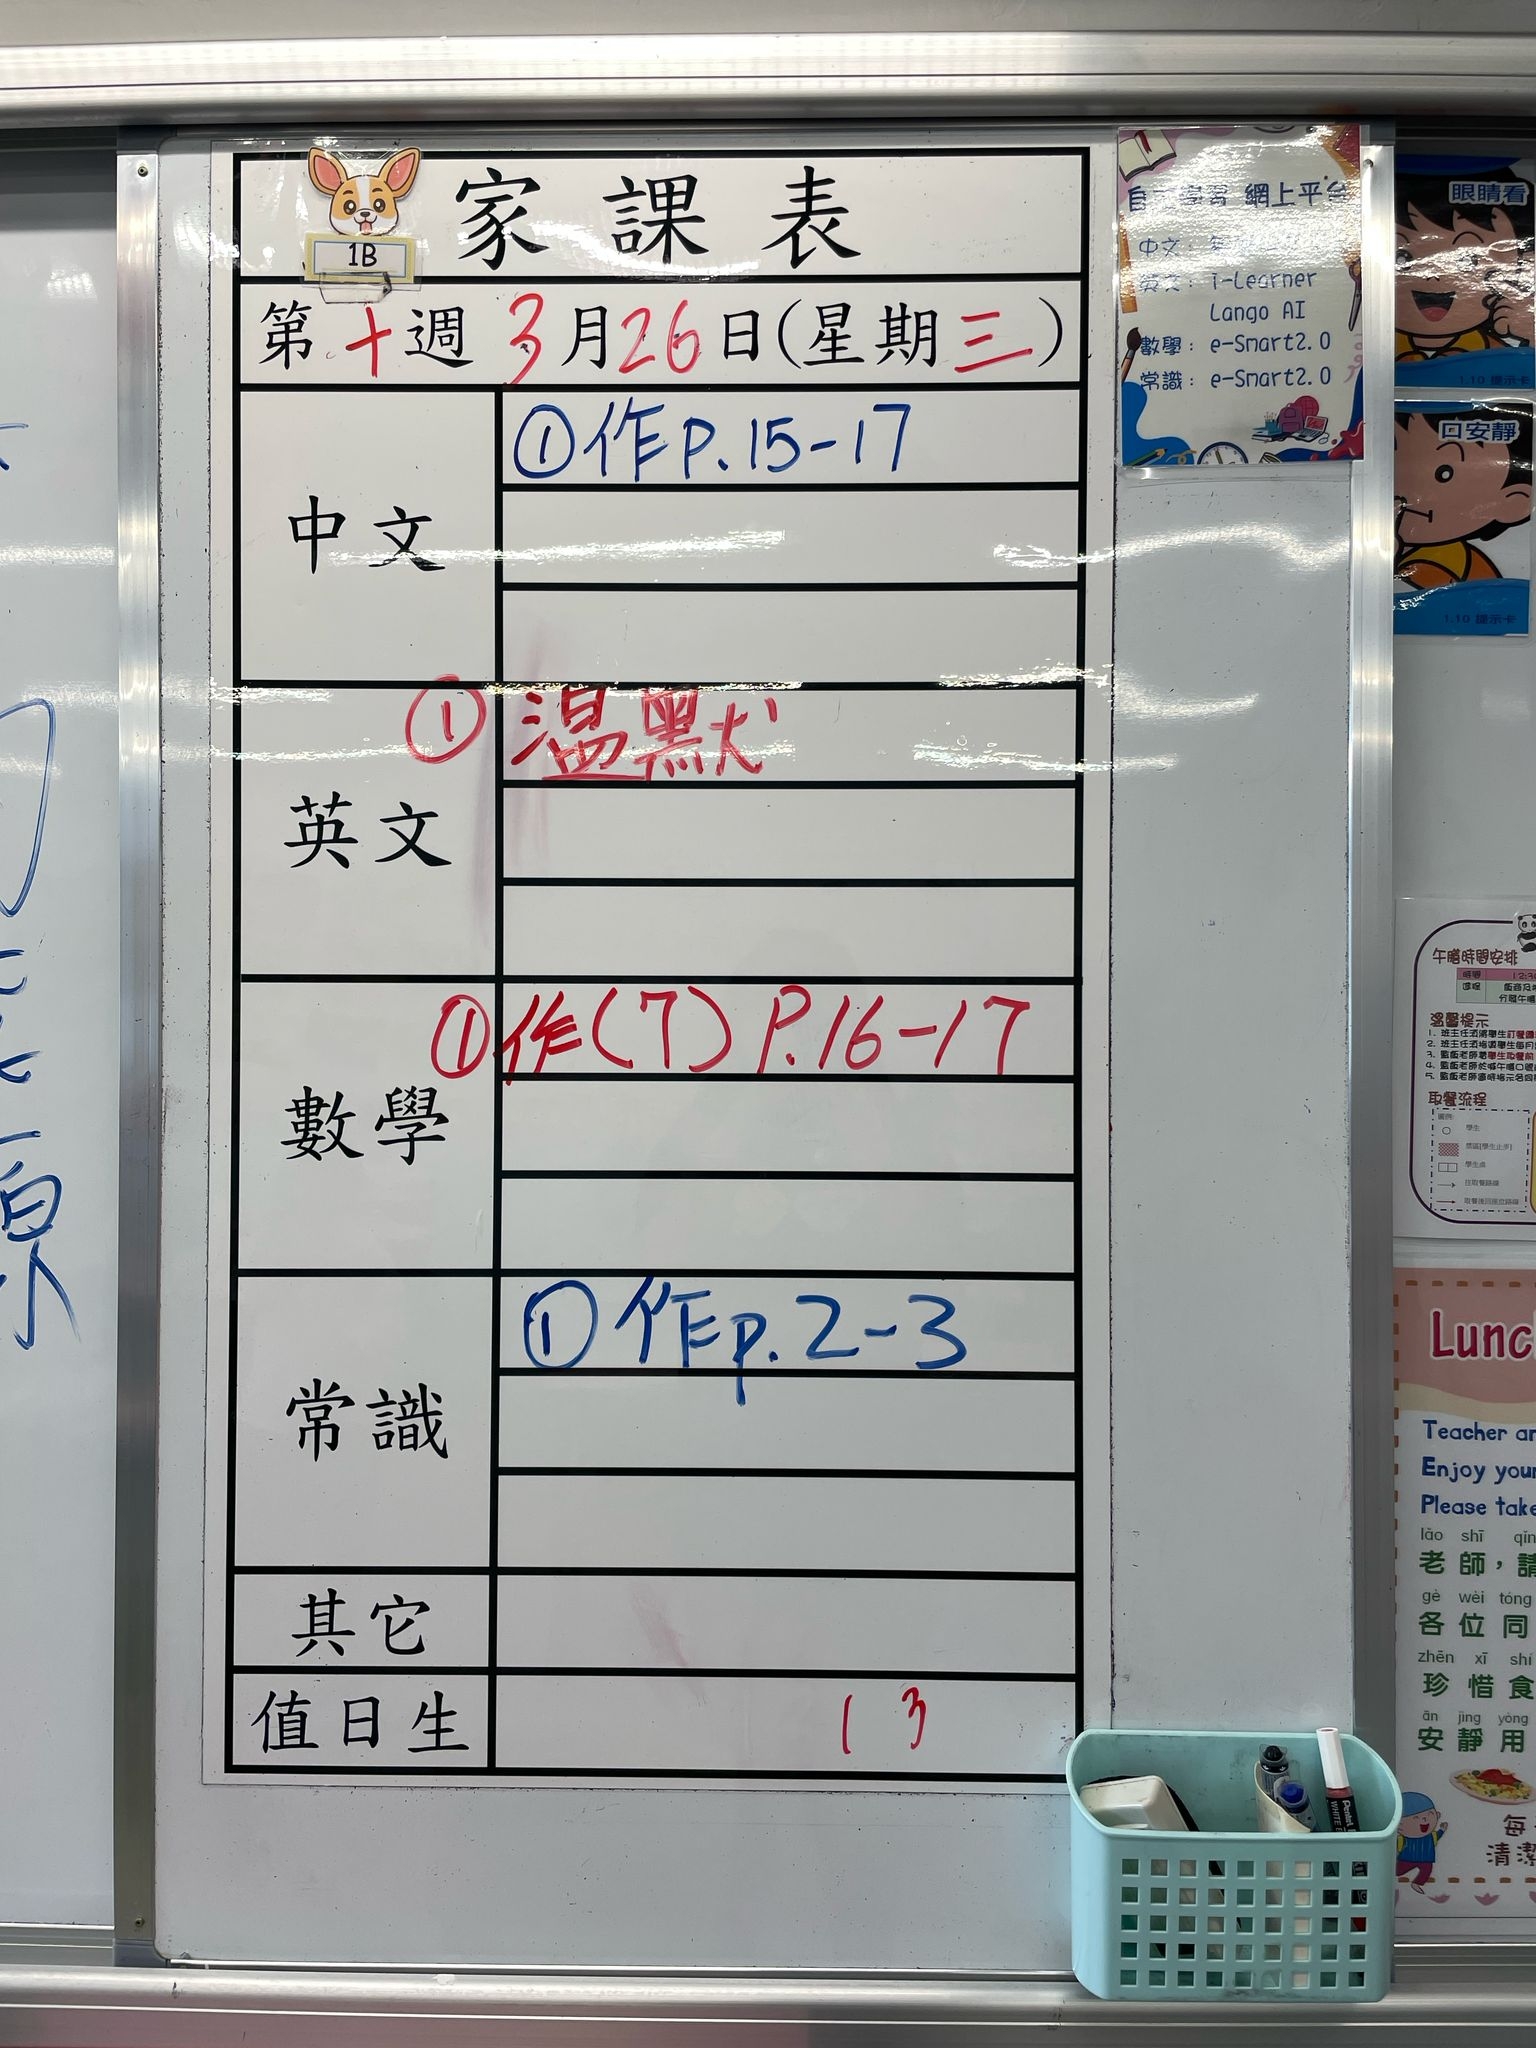 1B
家課表
第十週 3月26日(星期三)
中文
①作P.15-17
英文
① 温默
數學
①作(7) P.16-17
常識
①作p.2-3
其它
值日生
1 3
網上平台
中文：
英文：i-Learner
Lango AI
數學：e-Smart2.0
常識：e-Smart2.0
眼睛看
1.10 提示卡
口安靜
1.10 提示卡
午膳時間安排
時間
溫馨提示
取餐流程
學生
Lunc
Teacher
Enjoy your
Please take
lǎo shī
老師，請
gè wèi tóng
各位同
zhēn xī shí
珍惜食
ān jìng yòng
安靜用
每
清潔